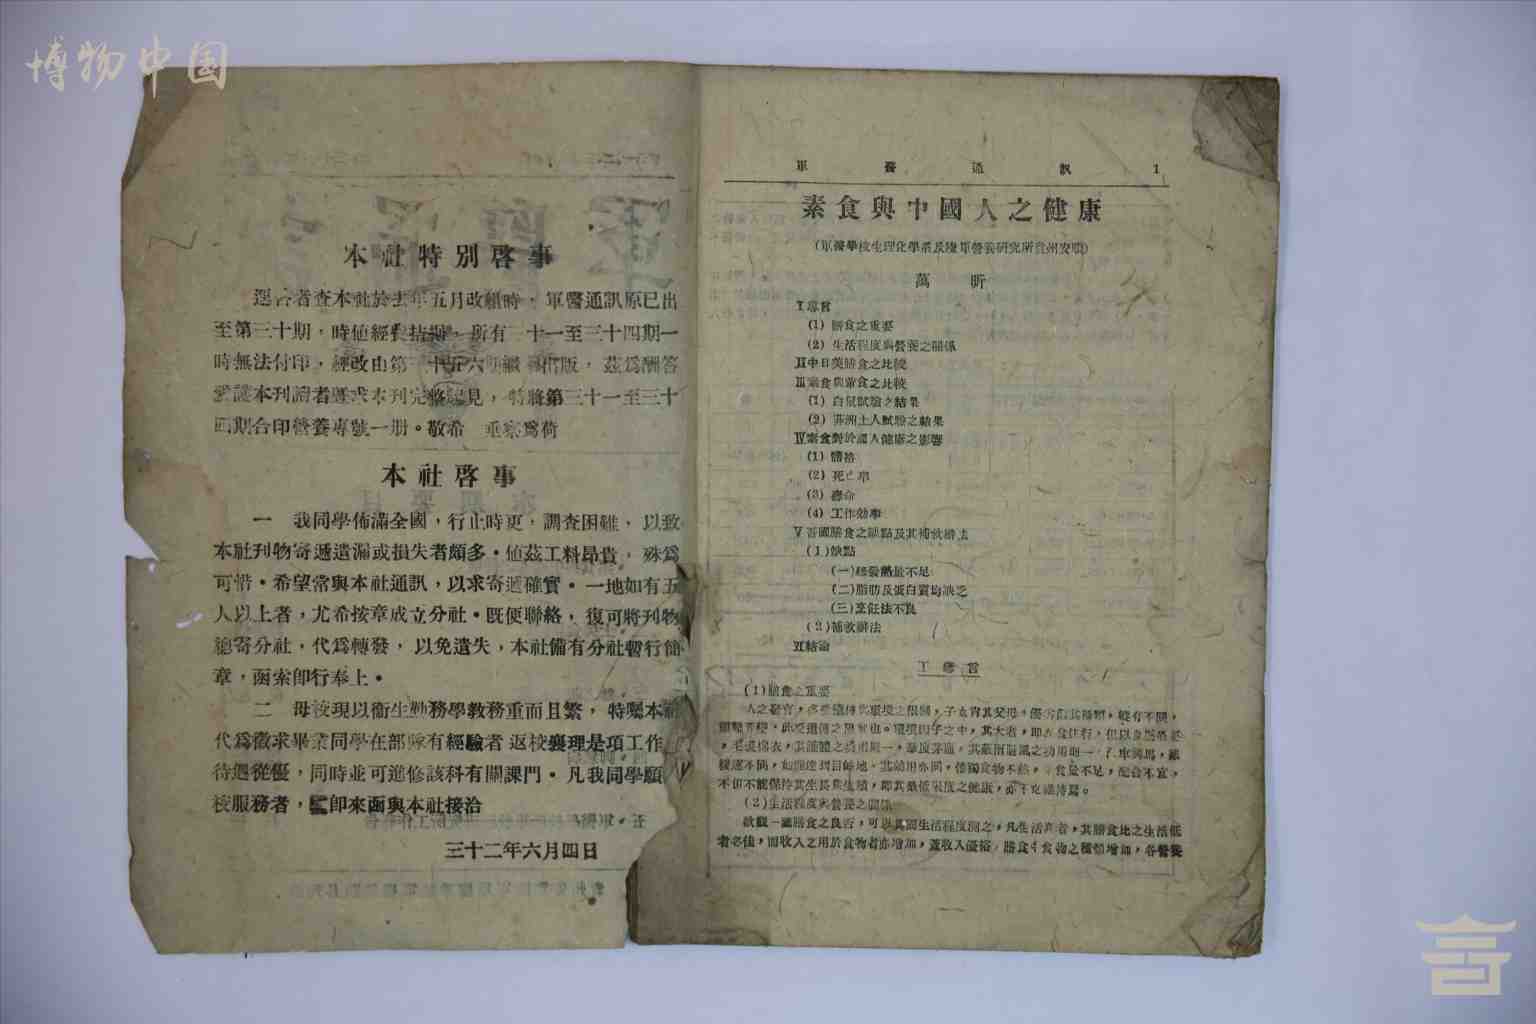 博物中国
本社特別啓事
逕啓者查本社於去年五月改組時，軍醫通訊原已出
至第三十期，時值經費拮据，所有三十一至三十四期一
時無法付印，經改由第三十五六期繼續出版，茲爲酬答
愛護本刊讀者要求本刊完整起見，特將第三十一至三十
四期合印營養專號一册。敬希　垂察爲荷
本社啓事
一　我同學佈滿全國，行止時更，調查困難，以致
本社刊物寄遞遺漏或損失者頗多。値茲工料昂貴，殊爲
可惜。希望常與本社通訊，以求寄遞確實。一地如有五
人以上者，尤希按章成立分社。旣便聯絡，復可將刊物
總寄分社，代爲轉發，以免遺失，本社備有分社暫行簡
章，函索卽行奉上。
二　母校現以衞生勤務學教務重而且繁，特囑本社
代爲徵求畢業同學在部隊有經驗者返校襄理是項工作
待遇從優，同時並可進修該科有關課門。凡我同學願
校服務者，卽來函與本社接洽
三十二年六月四日
軍醫通訊 1
素食與中國人之健康
（軍醫學校生理化學系及陸軍營養研究所貴州安順）
萬昕
Ⅰ導言
（1）膳食之重要
（2）生活程度與營養之關係
Ⅱ中日美膳食之比較
Ⅲ素食與葷食之比較
（1）白鼠試驗之結果
（2）非洲土人試驗之結果
Ⅳ素食對於國人健康之影響
（1）體格
（2）死亡率
（3）壽命
（4）工作效率
Ⅴ吾國膳食之缺點及其補救辦法
（1）缺點
（一）總發熱量不足
（二）脂肪及蛋白質均缺乏
（三）烹飪法不良
（2）補救辦法
Ⅵ結論
Ⅰ導言
（1）膳食之重要
（2）生活程度與營養之關係
欲觀一國膳食之良否，可以其國生活程度測之，凡生活高者，其膳食比之生活低
者必佳，而收入之用於食物者亦增加，蓋收入優裕，膳食中食物之種類增加，各營養